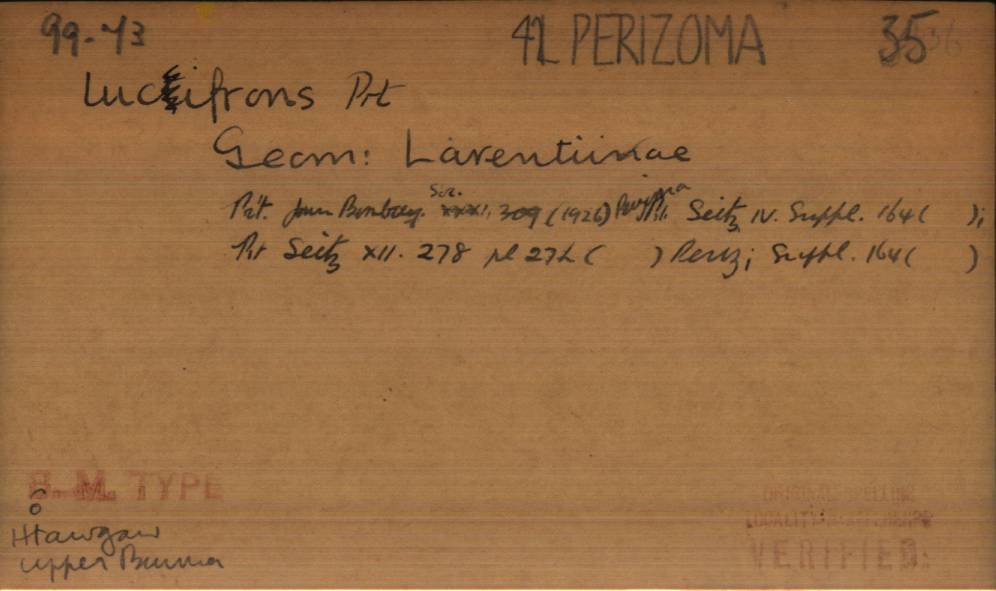 99-73 42 PERIZOMA 35 36
Lucifrons Prt
Geom: Larentiinae
Prt. Journ Bombay. Soc. xxxi, 309 (1926) Seitz IV. Suppl. 164( );
Prt Seitz XII. 278 pl 27h ( ) Periz; Suppl. 164( )
B. M. TYPE
Htawgaw
upper Burma
ORIGINAL SPELLING
LOCALITY
VERIFIED: